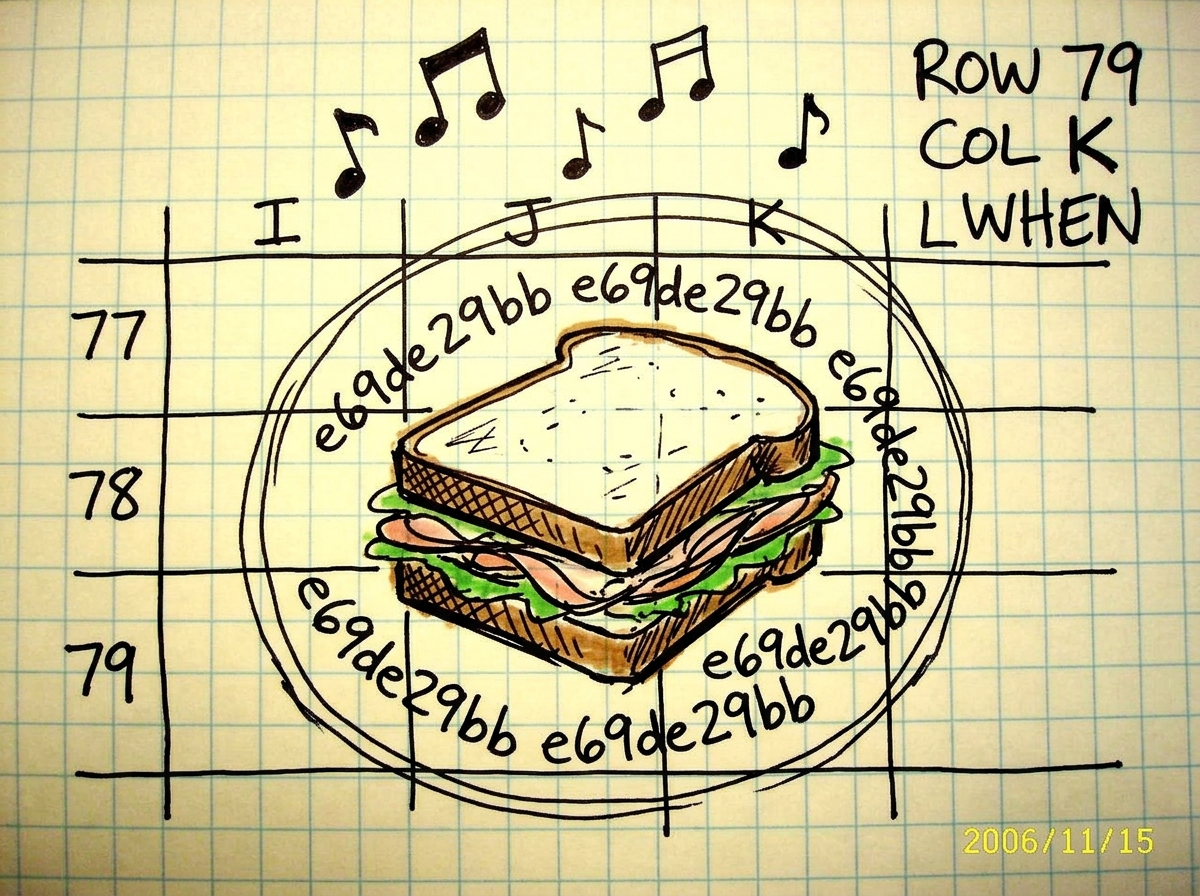 ROW 79
COL K
LWHEN
I J K
77
78
79
e69de29bb
e69de29bb
e69de29bb
e69de29bb
e69de29bb
e69de29bb
2006/11/15